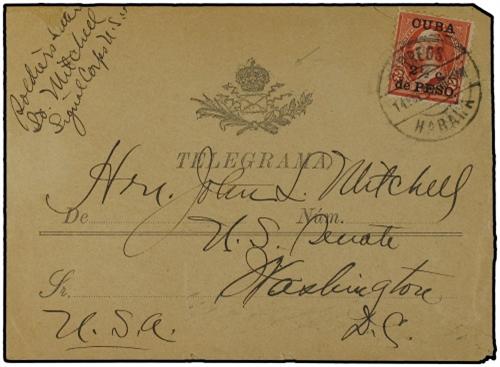 Soldier's Letter
Lt. Mitchell
Signal Corps U.S.
CUBA
2½ c.
de PESO.
HABANA
TELEGRAMA
Hon. John L. Mitchell
De Núm.
U.S. Senate
Sr. Washington
U.S.A. D.C.